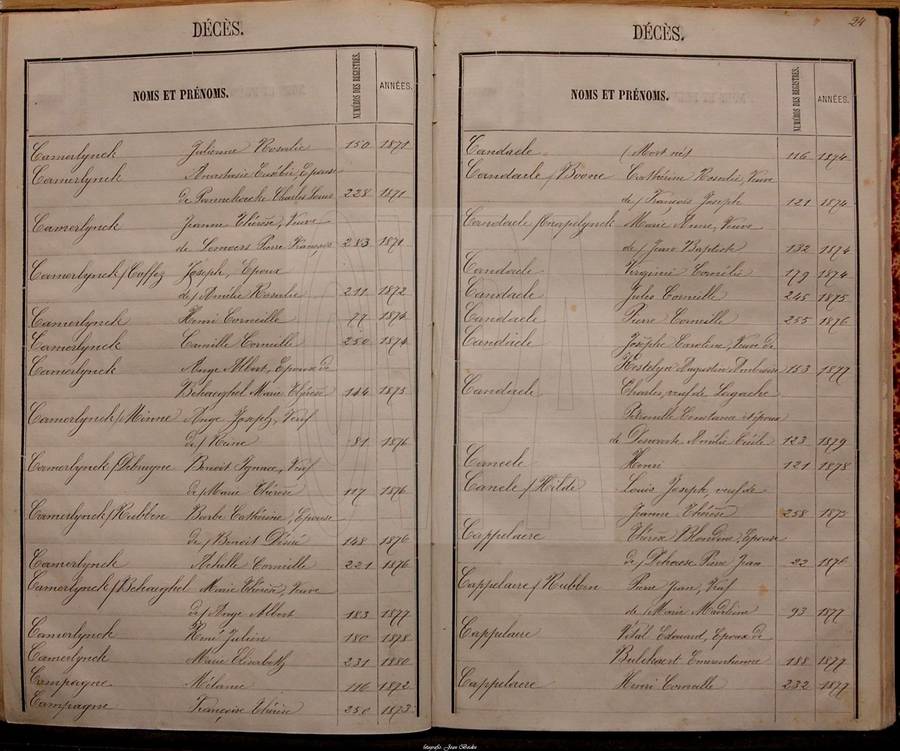 DÉCÈS.
NOMS ET PRÉNOMS. NUMÉROS DES REGISTRES. ANNÉES.
Camerlynck Julienne Rosalie 150 1871
Camerlynck Anastasie Eusébie, Epouse
de Pannekoucke Charles Louis 228 1871
Camerlynck Jeanne Thérèse, Veuve
de Lemaers Pierre François 283 1871
Camerlynck / Caffez Joseph, Epoux
de / Amélie Rosalie 211 1872
Camerlynck Henri Corneille 77 1874
Camerlynck Camille Cornille 250 1874
Camerlynck Ange Albert, Epoux de
Behaeghel Marie Thérèse 144 1875
Camerlynck / Minne Ange Joseph, Veuf
de / Reine 81 1876
Camerlynck / Debruyne Benoit Ignace, Veuf
de / Marie Thérèse 117 1876
Camerlynck / Rubben Barbe Cathérine, Epouse
de / Benoit Désiré 148 1876
Camerlynck Achille Corneille 221 1876
Camerlynck / Behaeghel Marie Thérèse, Veuve
de / Ange Albert 183 1877
Camerlynck René Julien 180 1878
Camerlynck Marie Elisabeth 231 1880
Campagne Mélanie 116 1872
Campagne Françoise Thérèse 250 1873
24
DÉCÈS.
NOMS ET PRÉNOMS. NUMÉROS DES REGISTRES. ANNÉES.
Candaele (Mort né) 116 1874
Candaele / Boone Cathérine Rosalie, Veuve
de / François Joseph 121 1874
Candaele / Knapelynck Marie Anne, Veuve
de / Jean Baptiste 132 1874
Candaele Virginie Cornélie 179 1874
Candaele Jules Corneille 245 1875
Candaele Pierre Corneille 255 1876
Candaele Josèphe Caroline, Veuve de
Kestelyn Augustin Ambroise 153 1877
Candaele Charles, veuf de Legache
Pétronille Constance & époux
de Amélie Cécile 123 1879
Canoele Henri 121 1878
Canele / Hilde Louis Joseph, veuf de
Jeanne Thérèse 258 1873
Cappelaere Blondine, Epouse
de / Pierre Jean 22 1876
Cappelaere / Rubben Pierre Jean, Veuf
de / Marie Madeleine 93 1877
Cappelaere Vital Edouard, Epoux de
Bulckaert Emerentienne 188 1877
Cappelaere Henri Corneille 232 1877